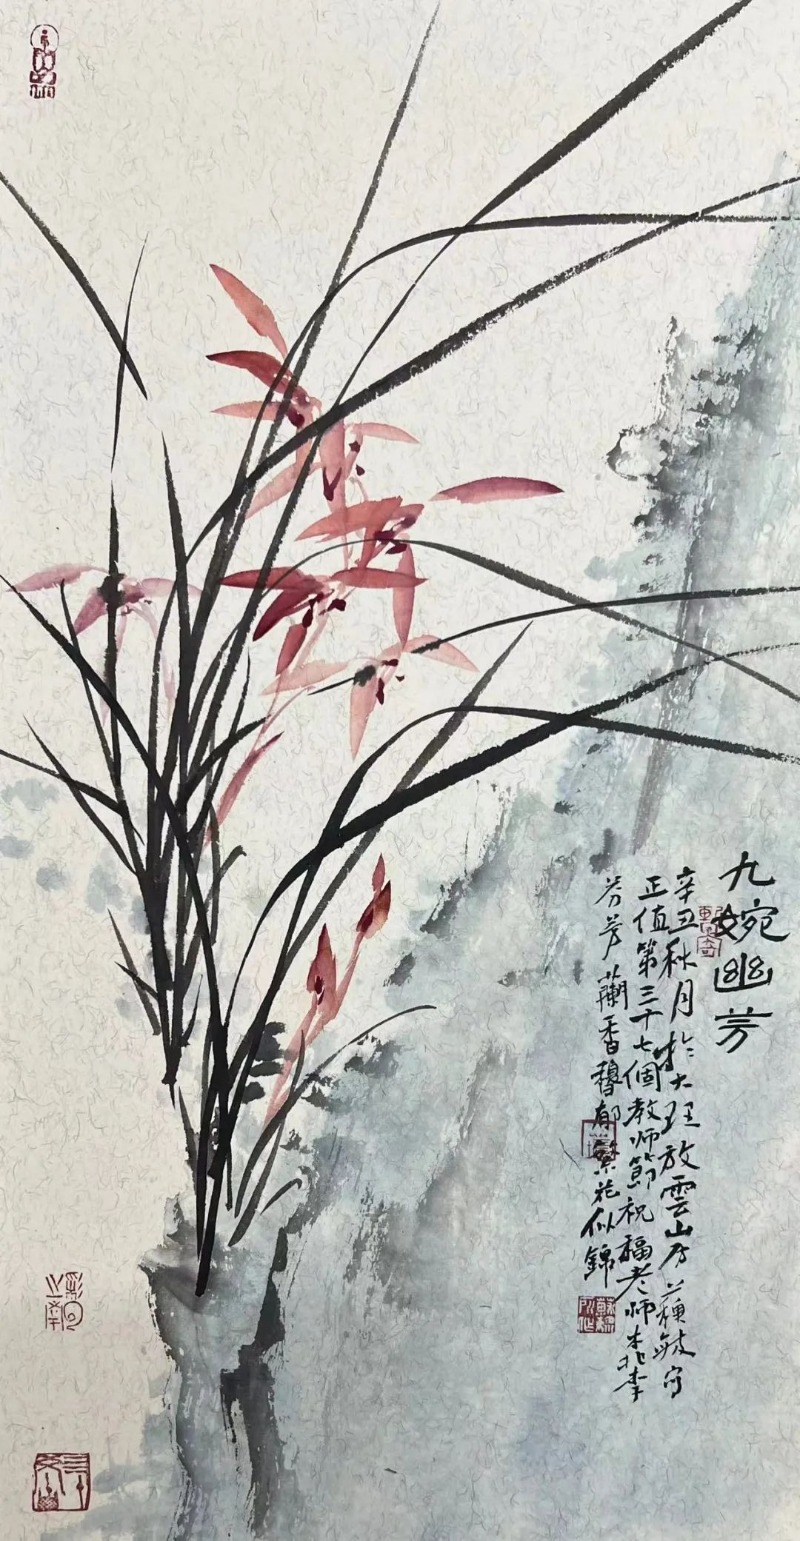 九婉幽芳
辛丑秋月於大理放雲山房蘇敏寫
正值第三十七個教师節祝福老师桃李
芬芳蘭香馥郁繁花似錦